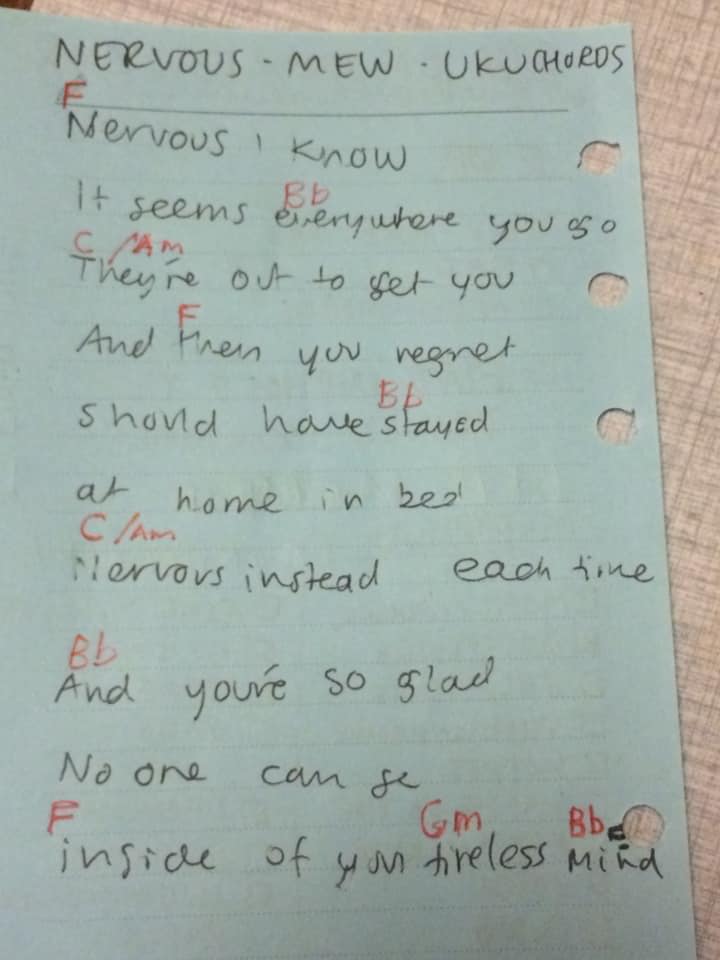 NERVOUS - MEW - UKUCHORDS
F
Nervous I know
Bb
It seems everywhere you go
C /Am
They're out to get you
F
And then you regret
Bb
should have stayed
at home in bed
C /Am
Nervous instead each time
Bb
And you're so glad
No one can se
F Gm Bb
inside of your tireless mind